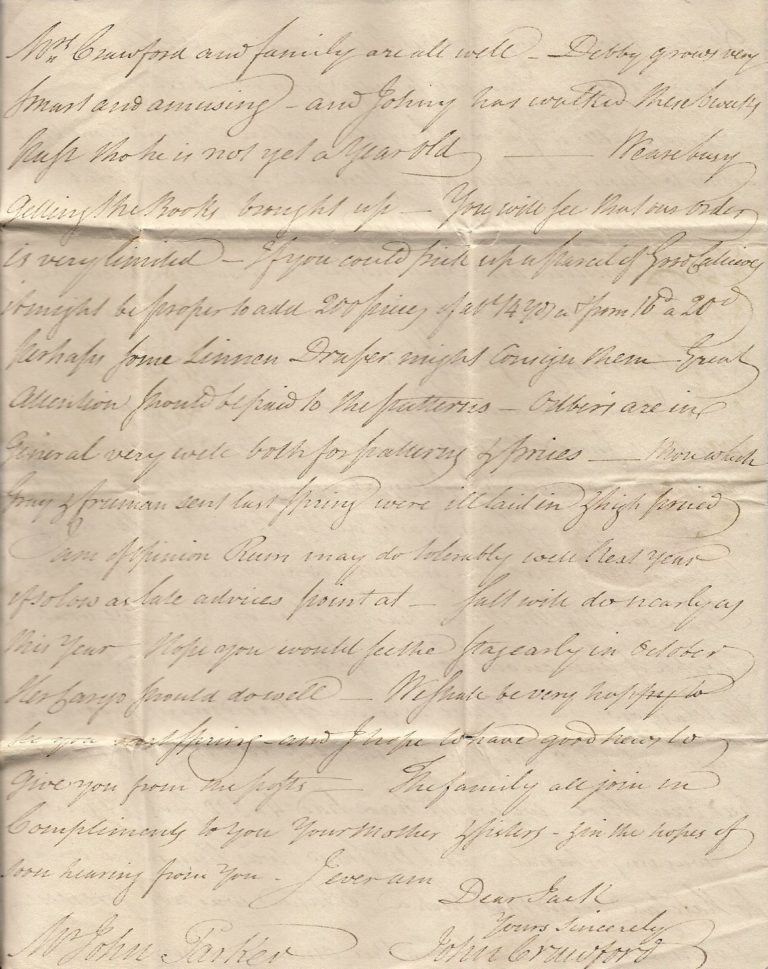 Mrs Crawford and family are all well – Debby grows very
smart and amusing – and Johny has walked these 6 weeks
past tho he is not yet a Year old — We are busy
getting the Books brought up – You will see that our order
is very limited – If you could pick up a parcel of Good Callicoes
it might be proper to add 200 pieces of abt 14 Yds ea from 16d a 20d
perhaps some Linnen Draper might consign them – Great
Attention should be paid to the patterns – are in
General very well both for patterns & prices — those which
& freeman sent last Spring were ill laid in & high priced
I am of opinion Rum may do tolerably well next Year
if so low as late advices point at – Salt will do nearly as
this Year – Hope you would see the Stag early in October
Her Cargo should do well – We shall be very happy to
see you next Spring – and I hope to have good news to
give you from the posts – The family all join in
Compliments to You Your Mother & Sisters – & in the hopes of
soon hearing from You – I ever am
Dear Jack
Yours Sincerely
John Crawford
Mr John Parker